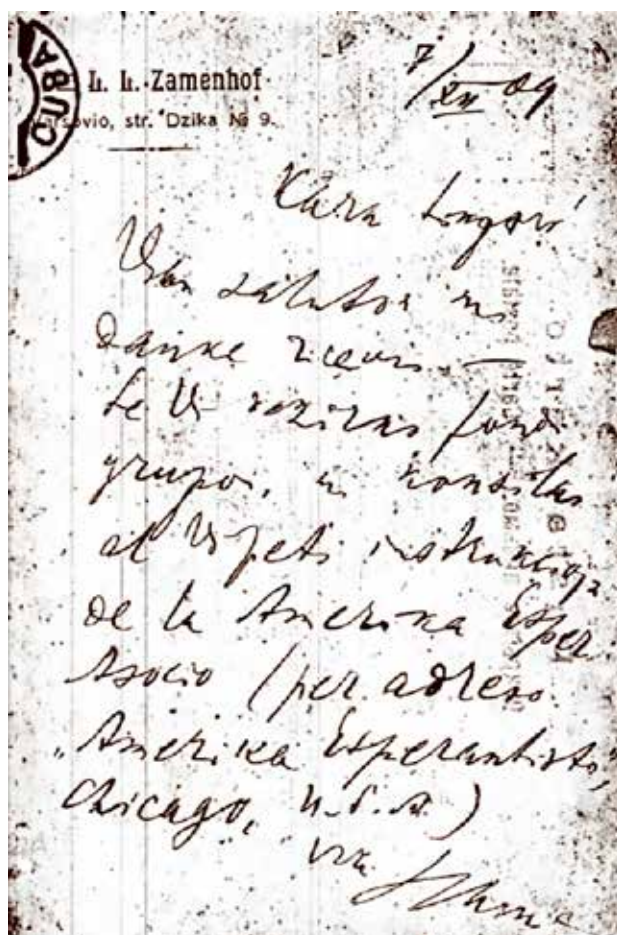 CUBA
L. L. Zamenhof
Varsovio, str. Dzika № 9.
7/XII 09
Kara
Vian saluton mi
danke ricevis. —
Se Vi deziras fondi
grupon, mi konsilas
al Vi peti instrukciojn
de la Amerika Esper.
Asocio (per adreso
„Amerika Esperantisto”,
Chicago, U. S. A.)
Via